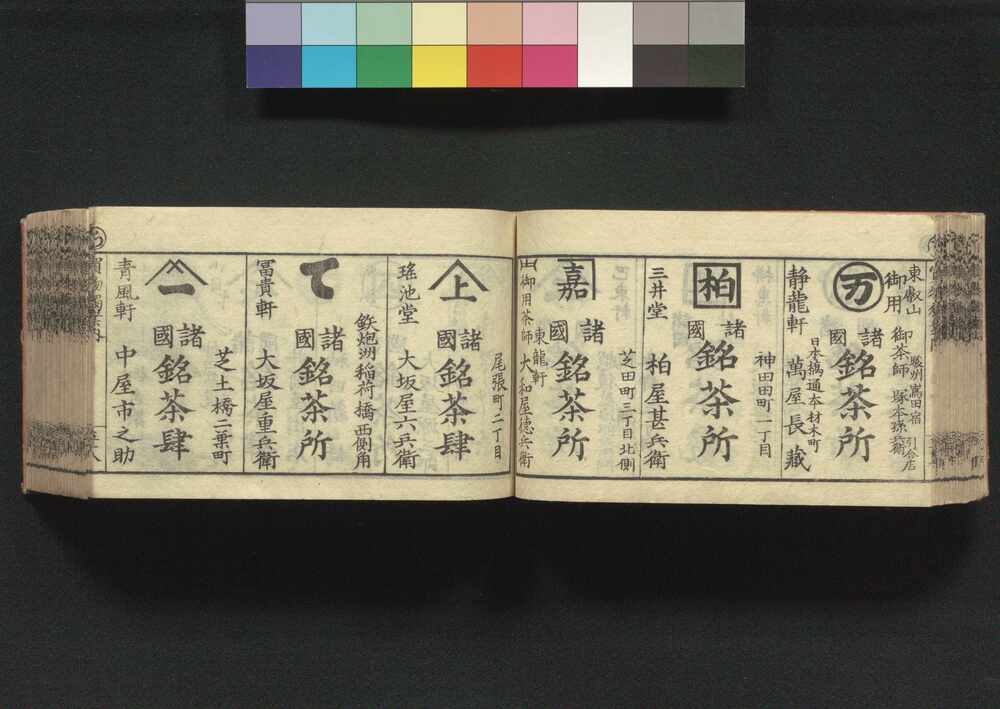 東叡山
御用
御茶師
駿州嶌田宿
塚本孫兵衛
引合店
万
諸國
銘茶所
日本橋通本材木町
静龍軒
萬屋長藏
柏
諸國
銘茶所
神田田町一丁目
三井堂
柏屋甚兵衛
嘉
諸國
銘茶所
芝田町三丁目北側
御用茶師
東龍軒
大和屋徳兵衛
上
諸國
銘茶肆
尾張町二丁目
瑤池堂
大坂屋六兵衛
て
諸國
銘茶所
鉄炮洲稲荷橋西側角
冨貴軒
大坂屋重兵衛
一
諸國
銘茶肆
芝土橋二葉町
青風軒
中屋市之助